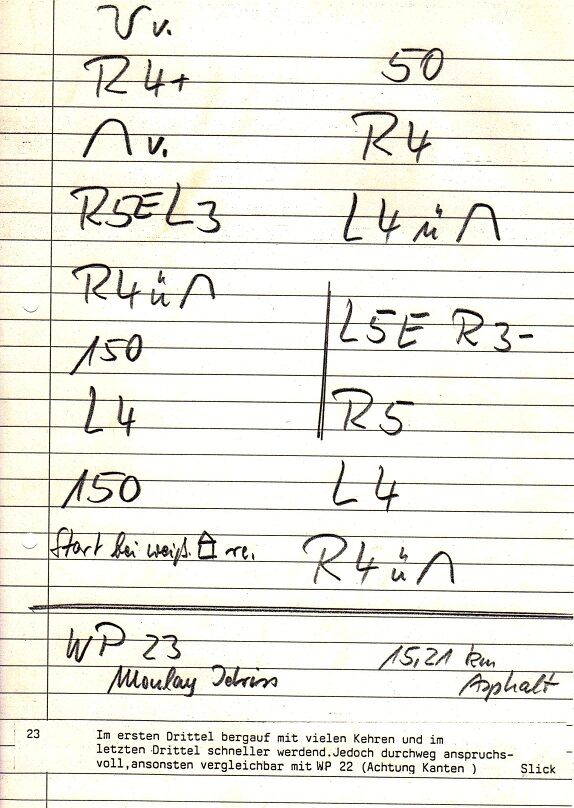 ∪ v.
R4+
∩ v.
R5E L3
R4 ü ∩
150
L4
150
Start bei weiß. re.
50
R4
L4 ü ∩
L5E R3-
R5
L4
R4 ü ∩
WP 23
Moulay Idriss
15,21 km
Asphalt
23
Im ersten Drittel bergauf mit vielen Kehren und im
letzten Drittel schneller werdend.Jedoch durchweg anspruchs-
voll,ansonsten vergleichbar mit WP 22 (Achtung Kanten )
Slick